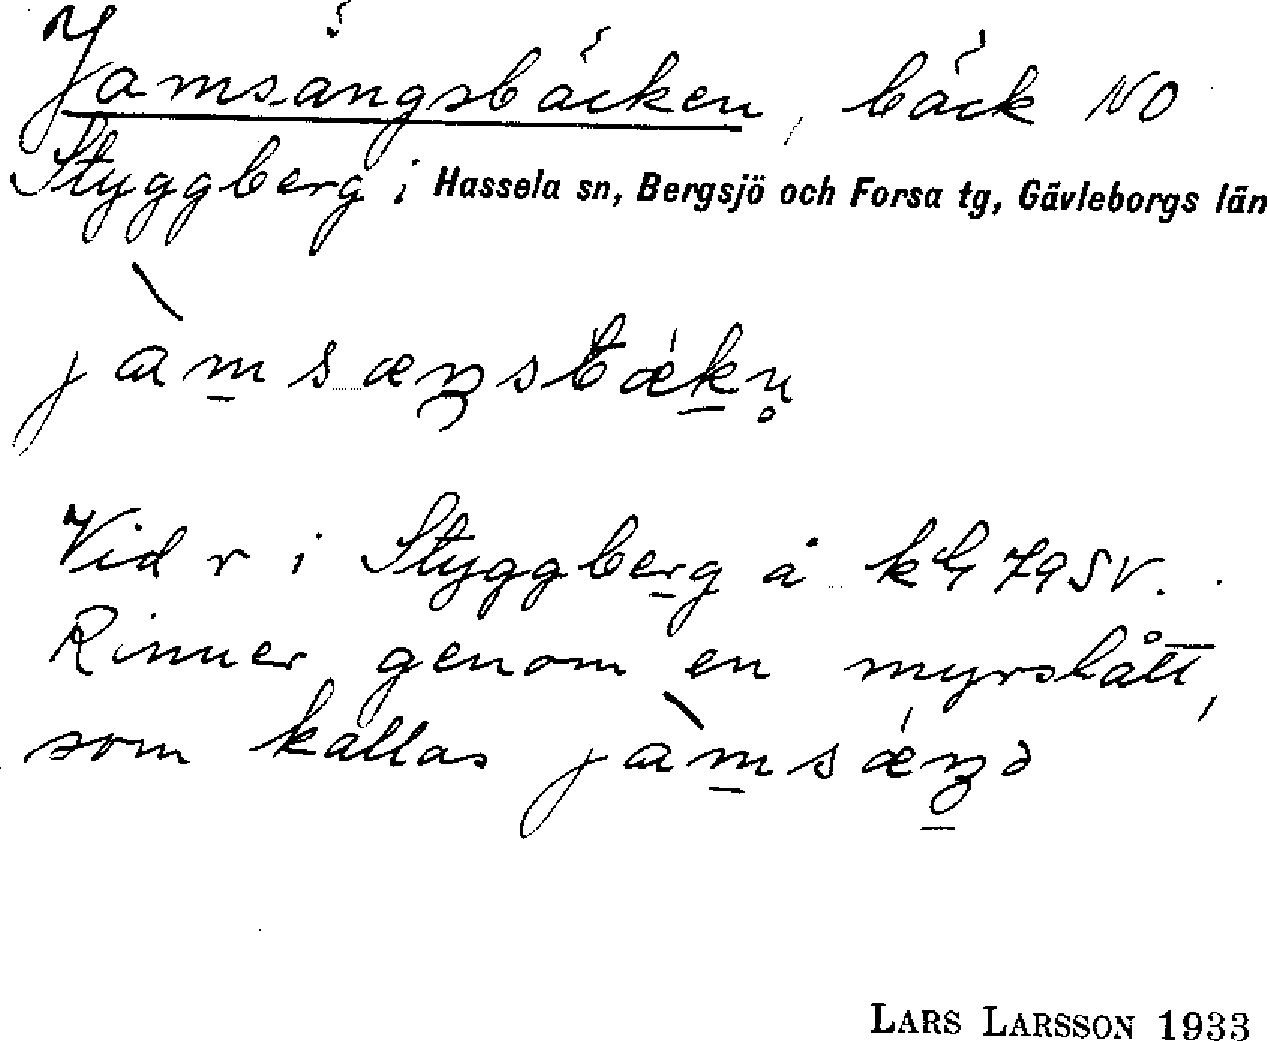 Jamsängsbäcken, bäck NO
Styggberg i Hassela sn, Bergsjö och Forsa tg, Gävleborgs län
jàmsæŋsbækn̥
Vid r i Styggberg å kbl 79 SV.
Rinner genom en myrslått,
som kallas jàmsæŋə
LARS LARSSON 1933